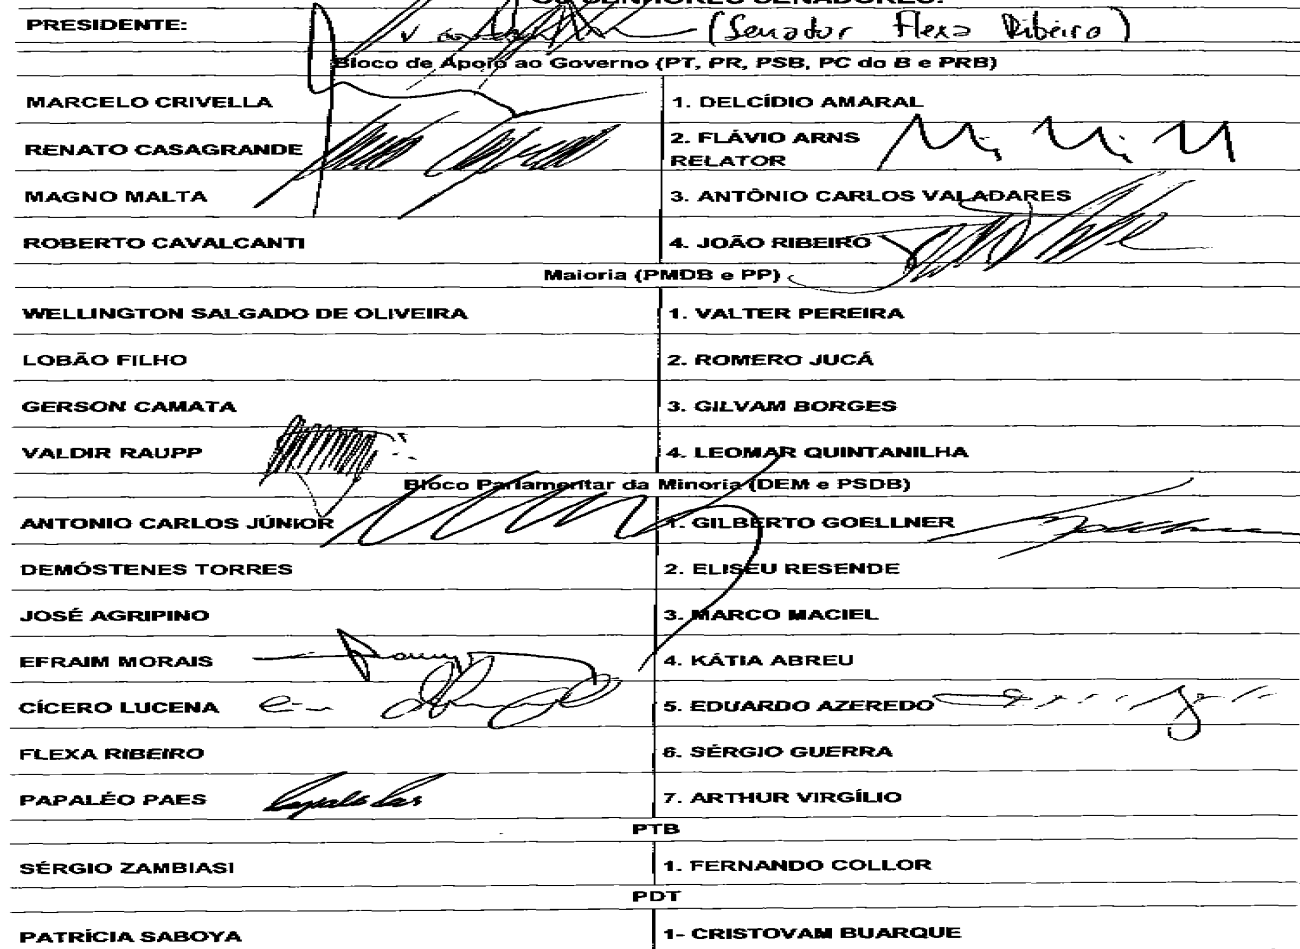 PRESIDENTE: (Senador Flexa Ribeiro)
Bloco de Apoio ao Governo (PT, PR, PSB, PC do B e PRB)
MARCELO CRIVELLA 1. DELCÍDIO AMARAL
RENATO CASAGRANDE 2. FLÁVIO ARNS
RELATOR
MAGNO MALTA 3. ANTÔNIO CARLOS VALADARES
ROBERTO CAVALCANTI 4. JOÃO RIBEIRO
Maioria (PMDB e PP)
WELLINGTON SALGADO DE OLIVEIRA 1. VALTER PEREIRA
LOBÃO FILHO 2. ROMERO JUCÁ
GERSON CAMATA 3. GILVAM BORGES
VALDIR RAUPP 4. LEOMAR QUINTANILHA
Bloco Parlamentar da Minoria (DEM e PSDB)
ANTONIO CARLOS JÚNIOR 1. GILBERTO GOELLNER
DEMÓSTENES TORRES 2. ELISEU RESENDE
JOSÉ AGRIPINO 3. MARCO MACIEL
EFRAIM MORAIS 4. KÁTIA ABREU
CÍCERO LUCENA 5. EDUARDO AZEREDO
FLEXA RIBEIRO 6. SÉRGIO GUERRA
PAPALÉO PAES 7. ARTHUR VIRGÍLIO
PTB
SÉRGIO ZAMBIASI 1. FERNANDO COLLOR
PDT
PATRÍCIA SABOYA 1- CRISTOVAM BUARQUE